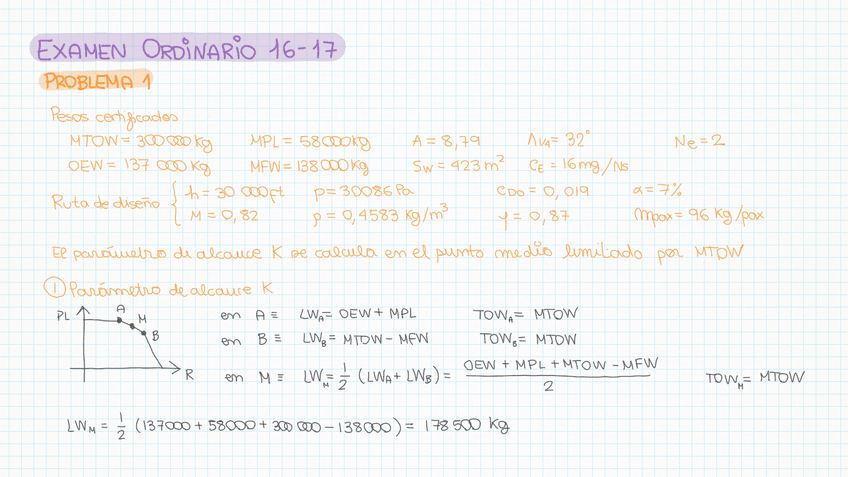 EXAMEN ORDINARIO 16-17
PROBLEMA 1
Pesos certificados
MTOW = 300 000 Kg MPL = 58000 Kg A = 8,79 Λ1/4 = 32° Ne = 2
OEW = 137 000 Kg MFW = 138000 Kg Sw = 423 m² CE = 16 mg/Ns
Ruta de diseño { h = 30 000 ft p = 30086 Pa CD0 = 0,019 α = 7%
M = 0,82 ρ = 0,4583 Kg/m³ φ = 0,87 mpax = 96 Kg/pax
El parámetro de alcance K se calcula en el punto medio limitado por MTOW
① Parámetro de alcance K
PL A M B R
en A ≡ LWA = OEW + MPL TOWA = MTOW
en B ≡ LWB = MTOW - MFW TOWB = MTOW
en M ≡ LWM = 1/2 (LWA + LWB) = (OEW + MPL + MTOW - MFW)/2 TOWM = MTOW
LWM = 1/2 (137000 + 58000 + 300 000 - 138000) = 178 500 Kg